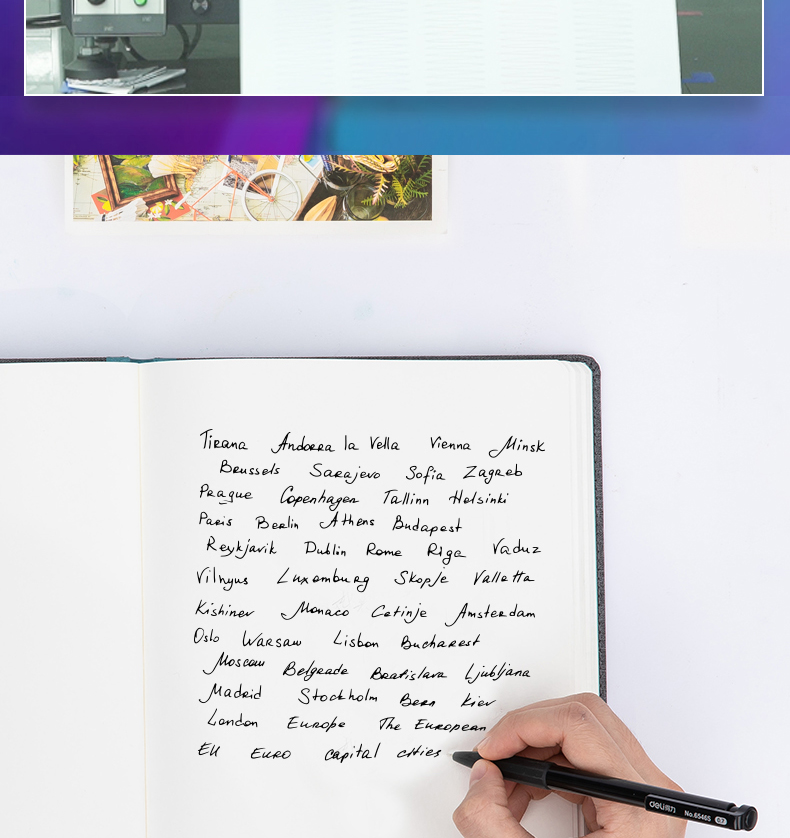 Tirana Andorra la Vella Vienna Minsk
Brussels Sarajevo Sofia Zagreb
Prague Copenhagen Tallinn Helsinki
Paris Berlin Athens Budapest
Reykjavik Dublin Rome Riga Vaduz
Vilnyus Luxemburg Skopje Valletta
Kishinev Monaco Cetinje Amsterdam
Oslo Warsaw Lisbon Bucharest
Moscow Belgrade Bratislava Ljubljana
Madrid Stockholm Bern Kiev
London Europe The European
EU EURO capital cities
deli得力 No.6546S 0.7